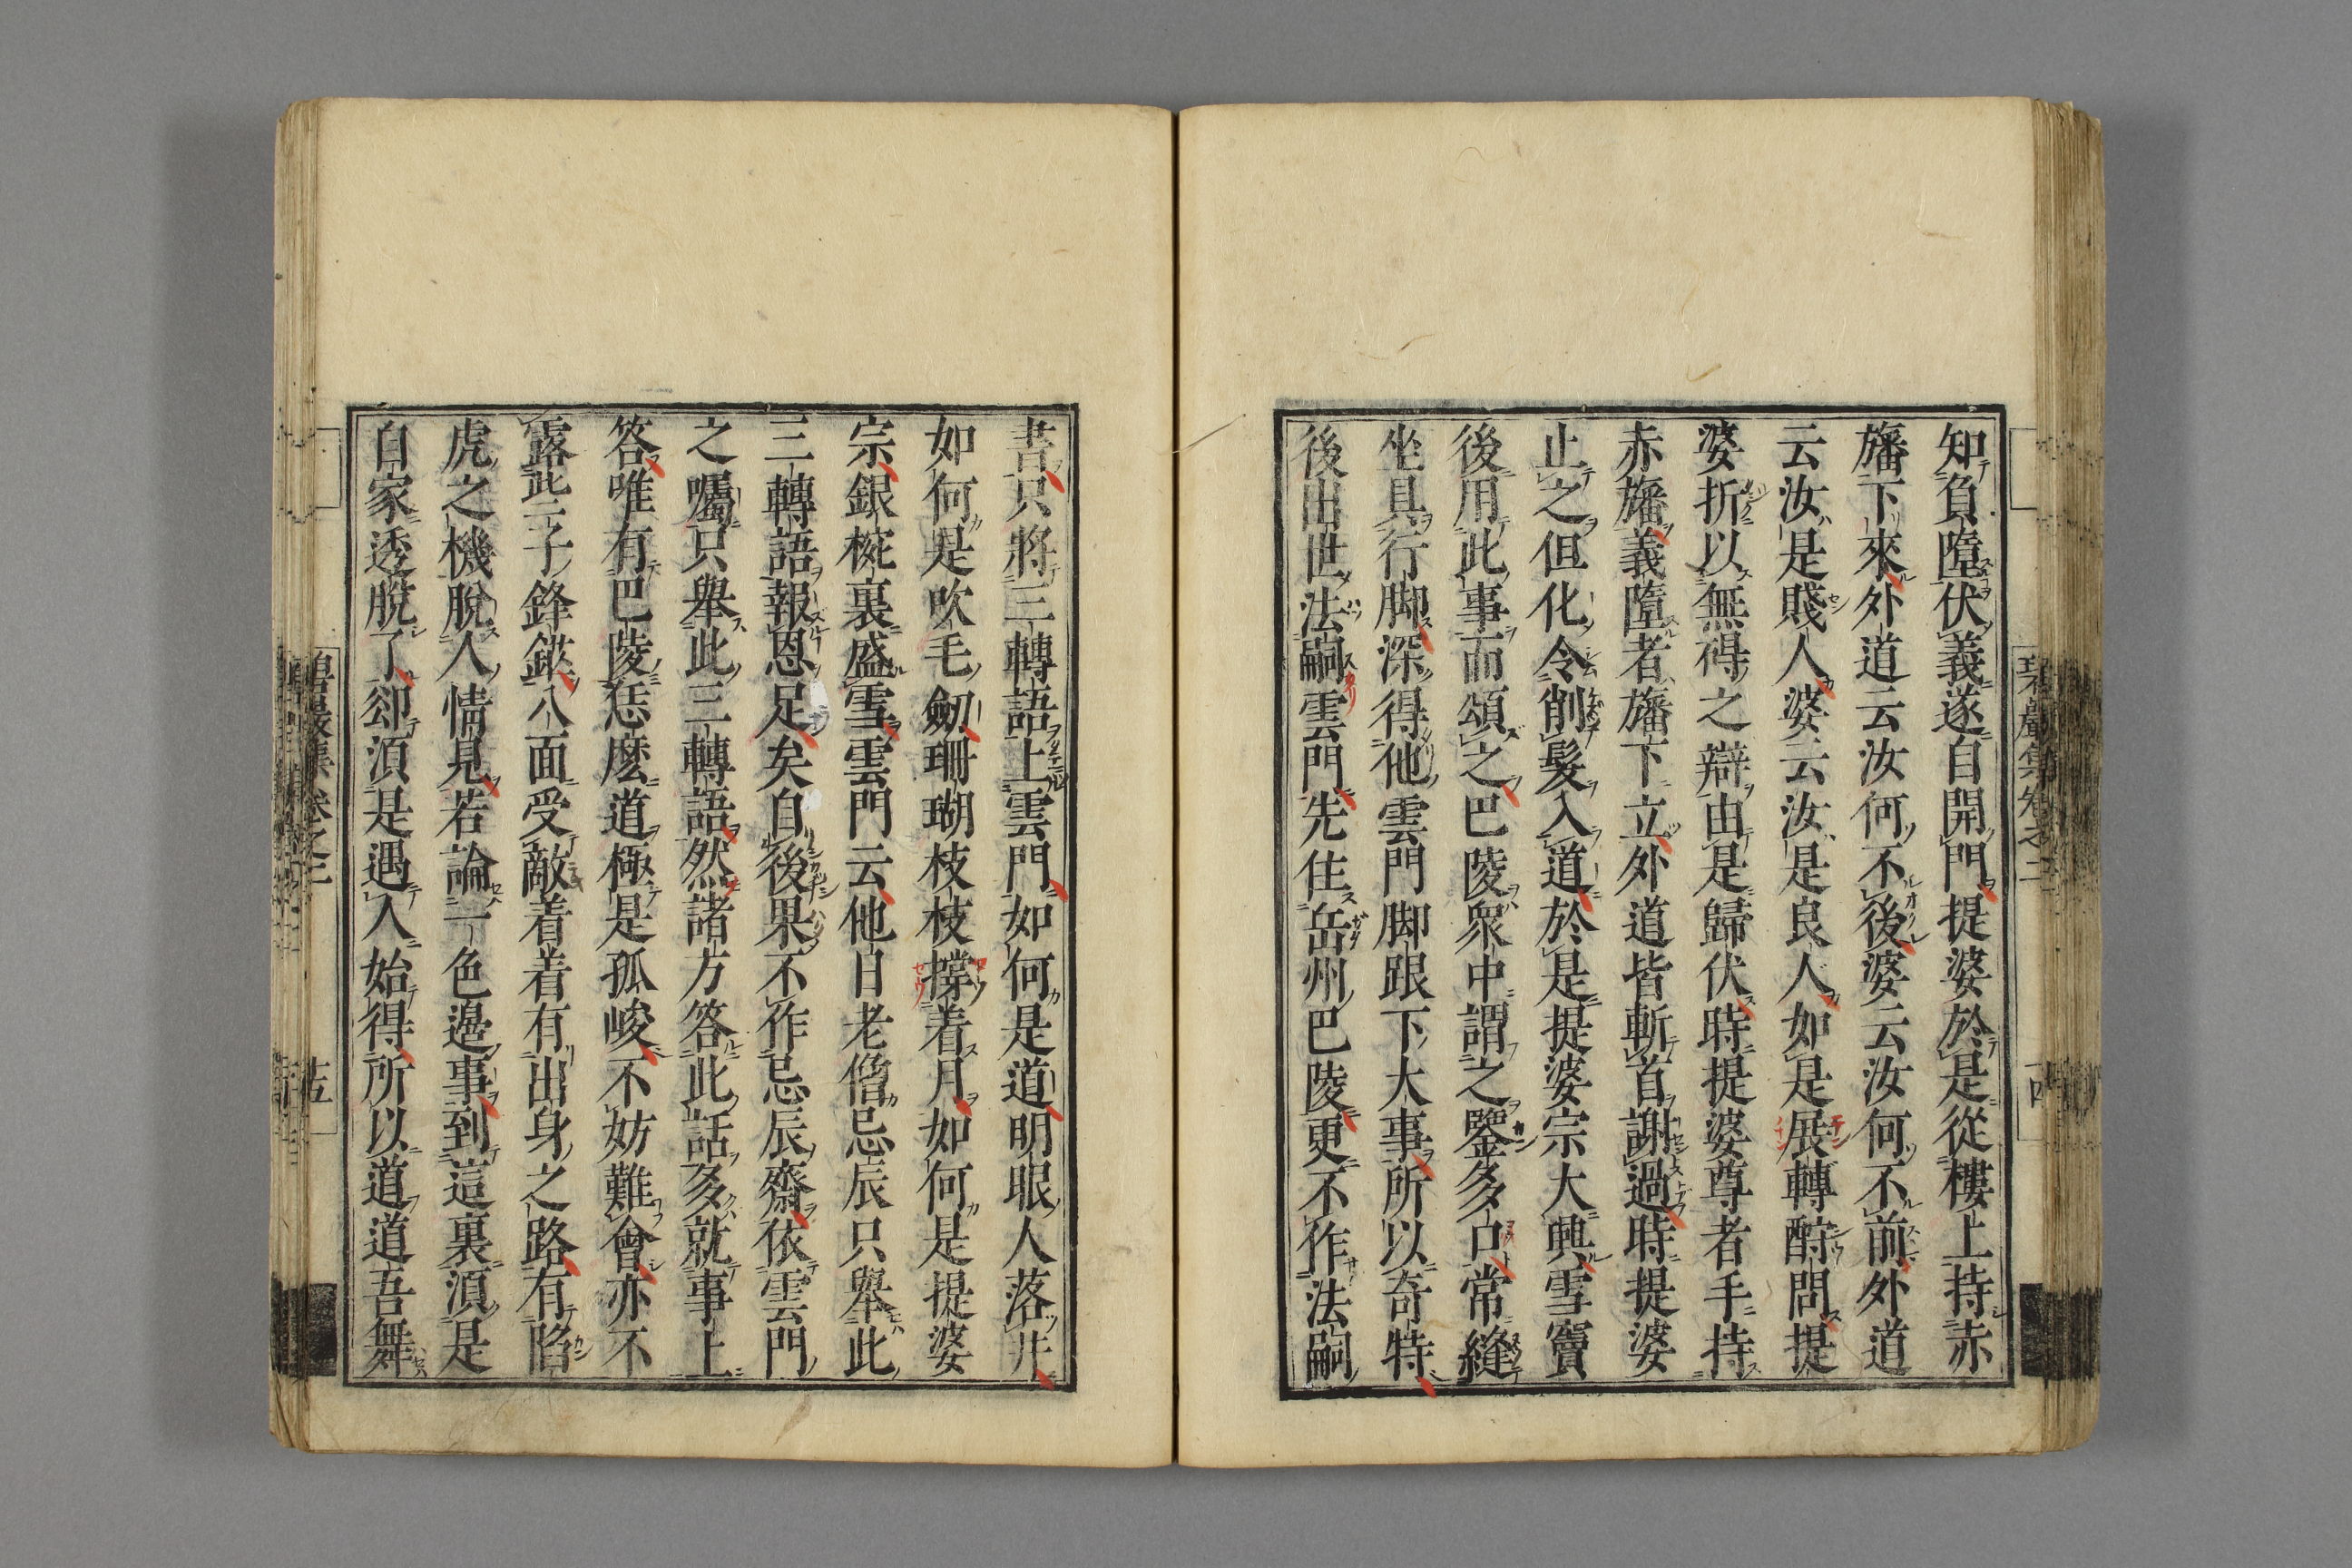 知負墮伏義遂自開門提婆於是從樓上持赤
旛下來外道云汝何不後婆云汝何不前外道
云汝是賤人婆云汝是良人如是展轉酧問提
婆折以無碍之辯由是歸伏時提婆尊者手持
赤旛義墮者旛下立外道皆斬首謝過時提婆
止之但化令削髮入道於是提婆宗大興雪竇
後用此事而頌之巴陵衆中謂之鑒多口常縫
坐具行脚深得他雲門脚跟下大事所以奇特
後出世法嗣雲門先住岳州巴陵更不作法嗣
書只將三轉語上雲門如何是道明眼人落井
如何是吹毛劒珊瑚枝枝撑着月如何是提婆
宗銀椀裏盛雪雲門云他日老僧忌辰只舉此
三轉語報恩足矣自後果不作忌辰齋依雲門
之囑只舉此三轉語然諸方答此話多就事上
答唯有巴陵恁麽道極是孤峻不妨難會亦不
露些子鋒鋩八面受敵着着有出身之路有陷
虎之機脫人情見若論一色邊事到這裏湏是
自家透脫了却湏是遇人始得所以道道吾舞